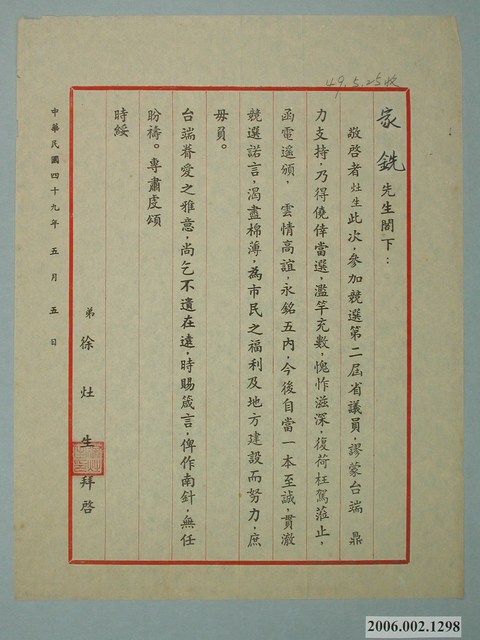 49.5.25收
家銑先生閣下：
敬啓者灶生此次，參加競選第二屆省議員，謬蒙台端　鼎
力支持，乃得僥倖當選，濫竽充數，愧怍滋深，復荷枉駕蒞止，
函電遙頒，　雲情高誼，永銘五內，今後自當一本至誠，貫澈
競選諾言，渴盡棉薄，為市民之福利及地方建設而努力，庶
毋負。
台端眷愛之雅意，尚乞不遺在遠，時賜箴言，俾作南針，無任
盼禱。專肅虔頌
時綏
弟　徐灶生拜啓
中華民國四十九年五月五日
2006.002.1298